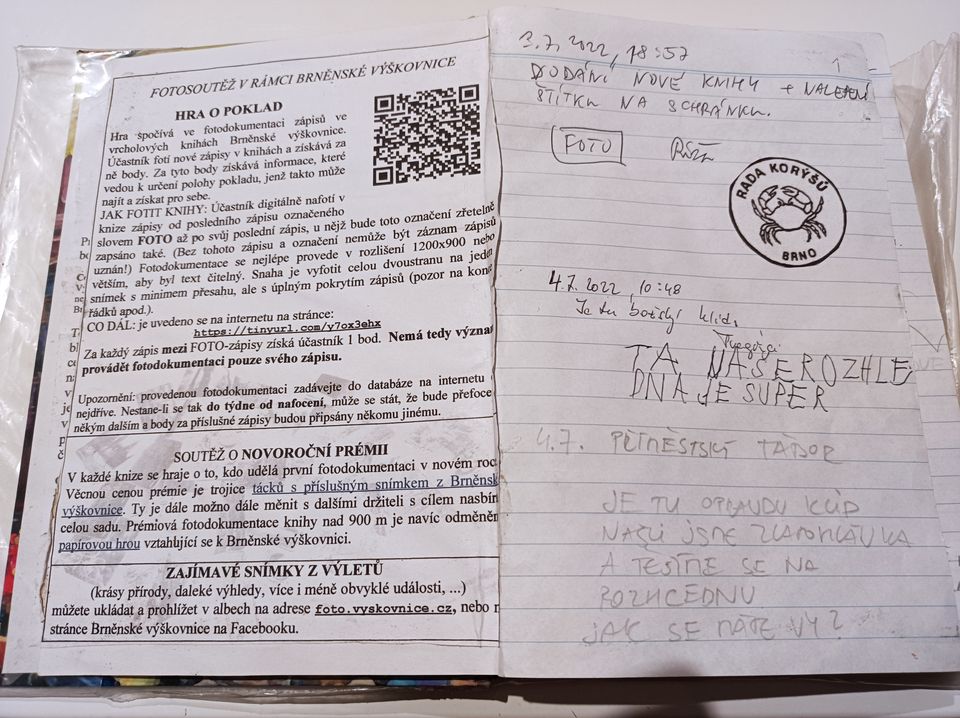 FOTOSOUTĚŽ V RÁMCI BRNĚNSKÉ VÝŠKOVNICE
HRA O POKLAD
Hra spočívá ve fotodokumentaci zápisů ve
vrcholových knihách Brněnské výškovnice.
Účastník fotí nové zápisy v knihách a získává za
ně body. Za tyto body získává informace, které
vedou k určení polohy pokladu, jenž takto může
najít a získat pro sebe.
JAK FOTIT KNIHY: Účastník digitálně nafotí v
knize zápisy od posledního zápisu označeného
slovem FOTO až po svůj poslední zápis, u nějž bude toto označení zřetelně
zapsáno také. (Bez tohoto zápisu a označení nemůže být záznam zápisů
uznán!) Fotodokumentace se nejlépe provede v rozlišení 1200x900 nebo
větším, aby byl text čitelný. Snaha je vyfotit celou dvoustranu na jeden
snímek s minimem přesahu, ale s úplným pokrytím zápisů (pozor na kone
řádků apod.).
CO DÁL: je uvedeno se na internetu na stránce:
https://tinyurl.com/y7ox3ehx
Za každý zápis mezi FOTO-zápisy získá účastník 1 bod. Nemá tedy význam
provádět fotodokumentaci pouze svého zápisu.
Upozornění: provedenou fotodokumentaci zadávejte do databáze na internetu
nejdříve. Nestane-li se tak do týdne od nafocení, může se stát, že bude přefoce
někým dalším a body za příslušné zápisy budou připsány někomu jinému.
SOUTĚŽ O NOVOROČNÍ PRÉMII
V každé knize se hraje o to, kdo udělá první fotodokumentaci v novém roce
Věcnou cenou prémie je trojice tácků s příslušným snímkem z Brněnsk
výškovnice. Ty je dále možno dále měnit s dalšími držiteli s cílem nasbír
celou sadu. Prémiová fotodokumentace knihy nad 900 m je navíc odměněn
papírovou hrou vztahující se k Brněnské výškovnici.
ZAJÍMAVÉ SNÍMKY Z VÝLETŮ
(krásy přírody, daleké výhledy, více i méně obvyklé události, ...)
můžete ukládat a prohlížet v albech na adrese foto.vyskovnice.cz, nebo n
stránce Brněnské výškovnice na Facebooku.
3.7.2022, 18:57
1
DODÁNÍ NOVÉ KNIHY + NALEPENÍ
ŠTÍTKU NA SCHRÁNKU.
FOTO
RADA KORÝŠŮ
BRNO
4.7.2022 10:48
Je tu božský klid.
TA NAŠE ROZHLE
DNA JE SUPER
4.7. PŘÍMĚSTSKÝ TÁBOR
JE TU OPRAVDU KLID
NAŠLI JSME ZLATOHLÁVKA
A TĚŠÍME SE NA
ROZHLEDNU
JAK SE MÁTE VY?